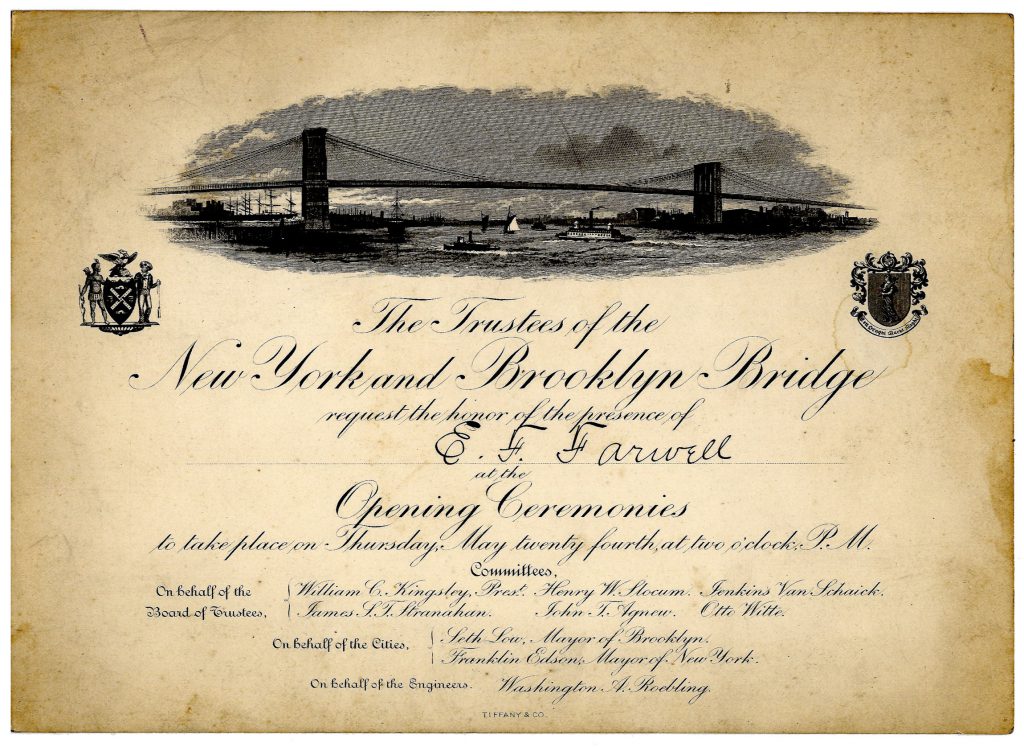 The Trustees of the
New York and Brooklyn Bridge
request the honor of the presence of
E. F. Farwell
at the
Opening Ceremonies
to take place on Thursday, May twenty fourth, at two o'clock, P. M.
Committees,
On behalf of the Board of Trustees,
William C. Kingsley, Prest. Henry W. Slocum. Jenkins Van Schaick.
James S. T. Stranahan. John T. Agnew. Otto Witte.
On behalf of the Cities,
Seth Low, Mayor of Brooklyn.
Franklin Edson, Mayor of New York.
On behalf of the Engineers. Washington A. Roebling.
TIFFANY & CO.